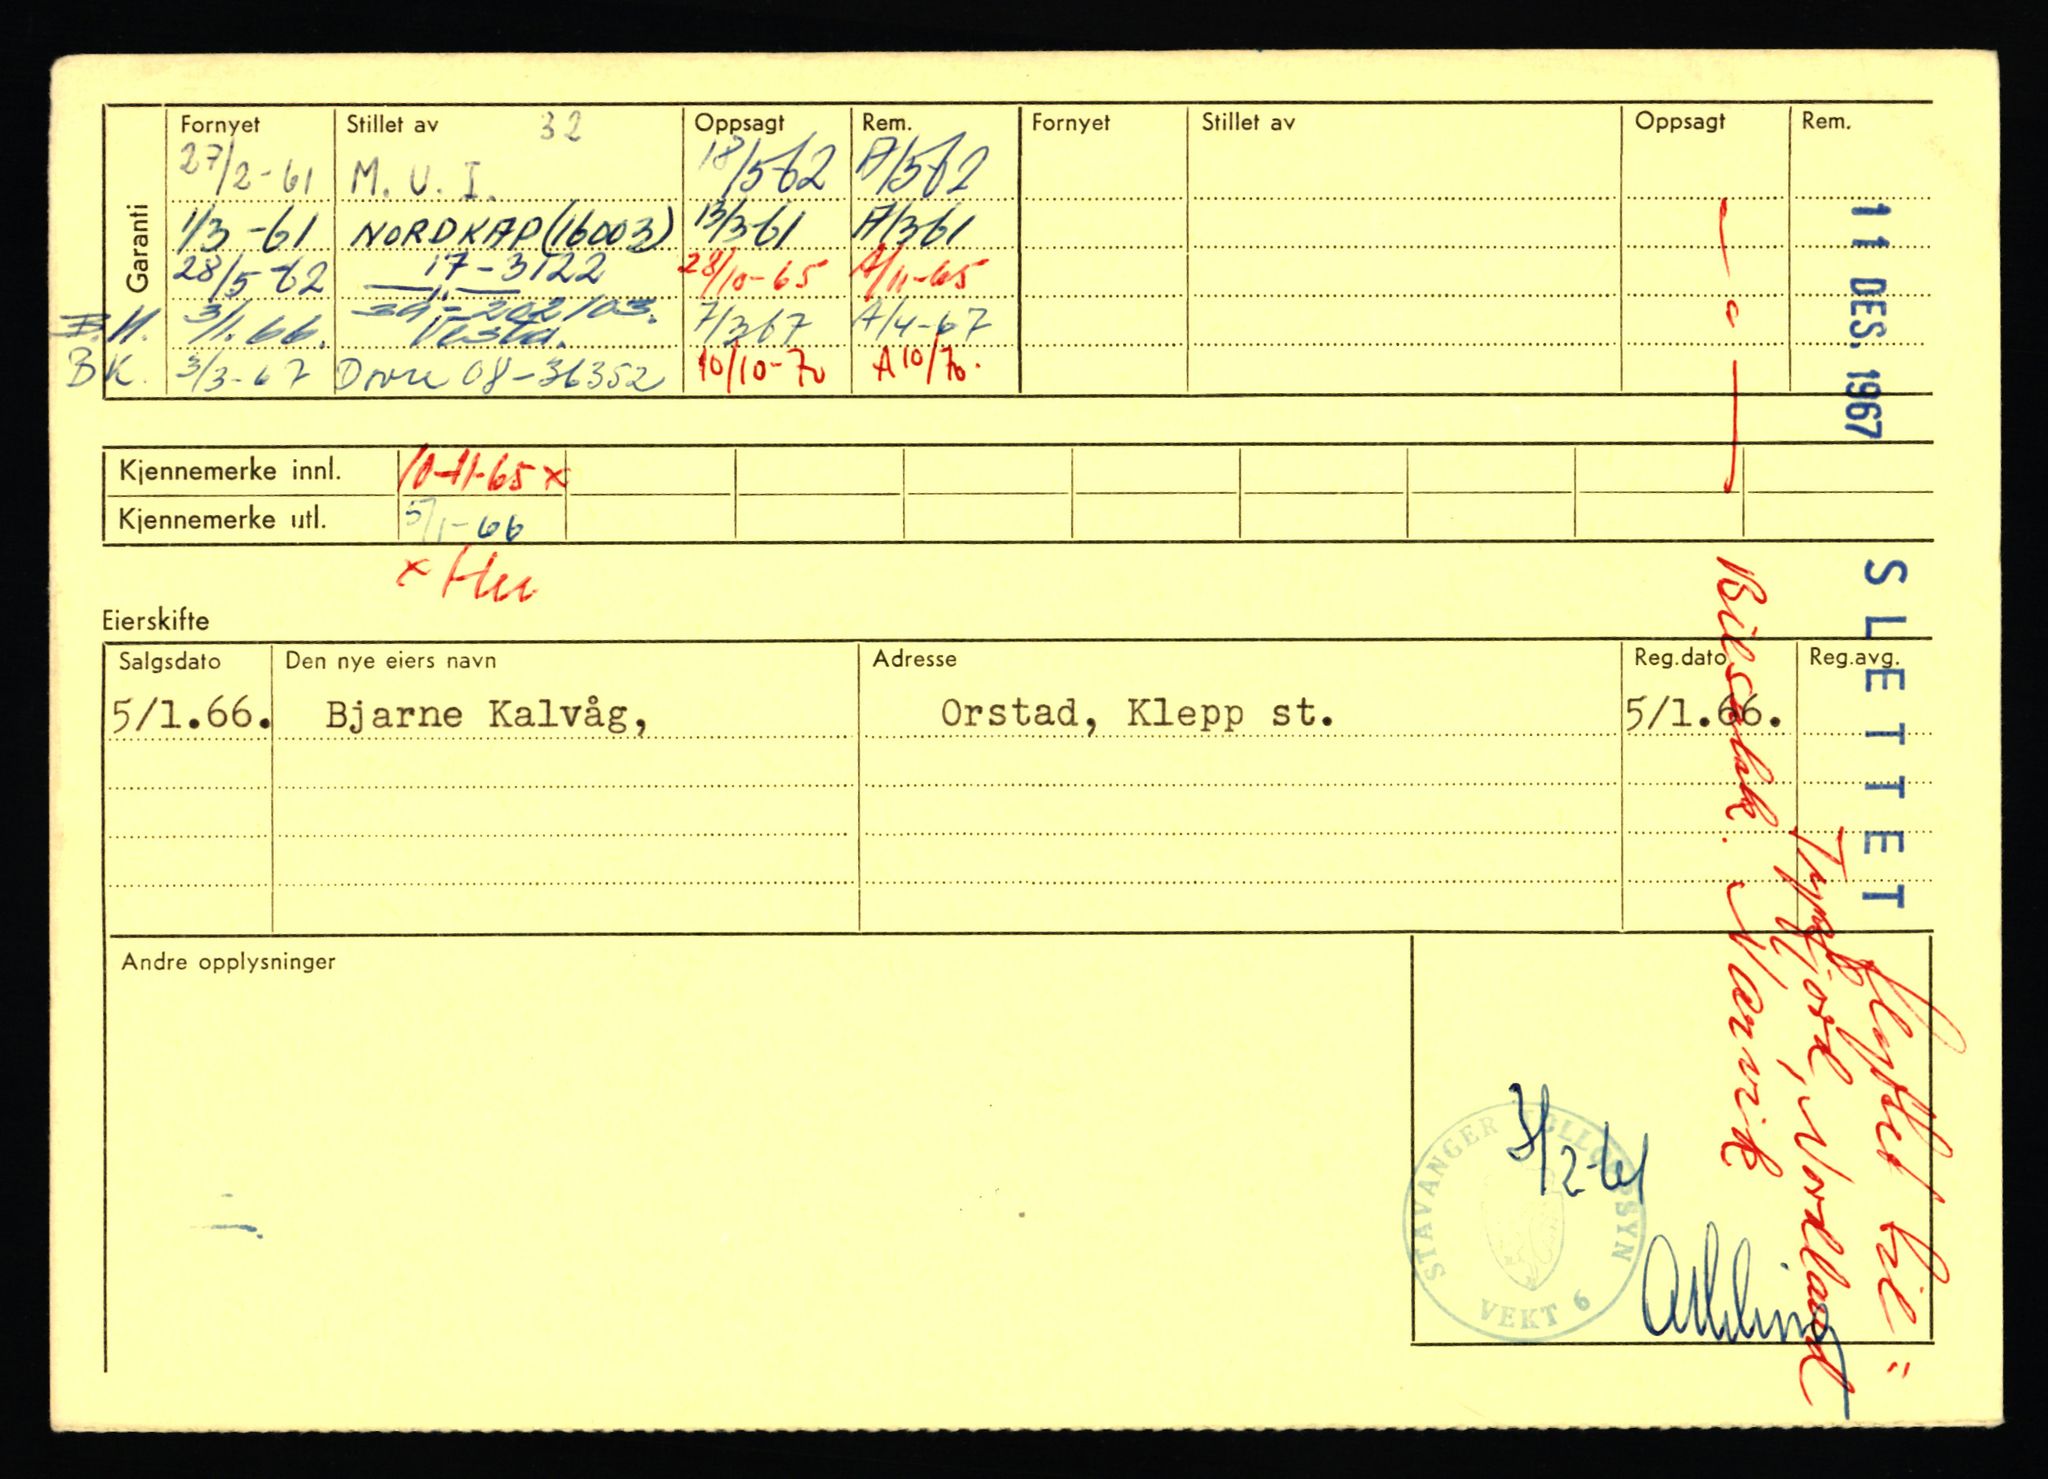 Garanti
Fornyet Stillet av 32 Oppsagt Rem. Fornyet Stillet av Oppsagt Rem.
27/2-61 M. U. I. 18/5-62 A/5-62
1/3-61 NORDKAP (16003) 13/3-61 A/3-61
28/5-62 —"— 17-3122 28/10-65 A/11-65
B.K. 3/1.66. 39-202103. Vesta. 7/3-67 A/4-67
BK. 3/3-67 08-36352 10/10-70 A 10/70.
Kjennemerke innl. 10-11-65 x
Kjennemerke utl. 5/1-66
x
Eierskifte
Salgsdato Den nye eiers navn Adresse Reg.dato Reg.avg.
5/1.66. Bjarne Kalvåg, Orstad, Klepp st. 5/1.66.
Andre opplysninger
11 DES. 1967
SLETTET
Flyttet til
Nordland
Bilsakk. Narvik
STAVANGER BILTILSYN
VEKT 6